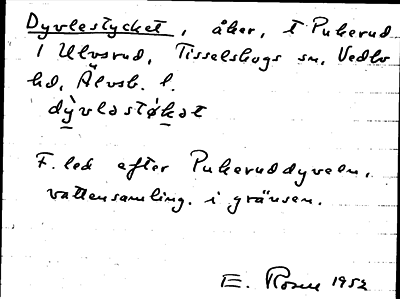 Dyvlestycket, åker, t Pukerud
1 Ulvsrud, Tisselskogs sn, Vedbo
hd, Älvsb. l.
dỳvləstø̀kət
F. led efter Pukeruddyveln,
vattensamling. i gränsen.
E. Rosen 1952